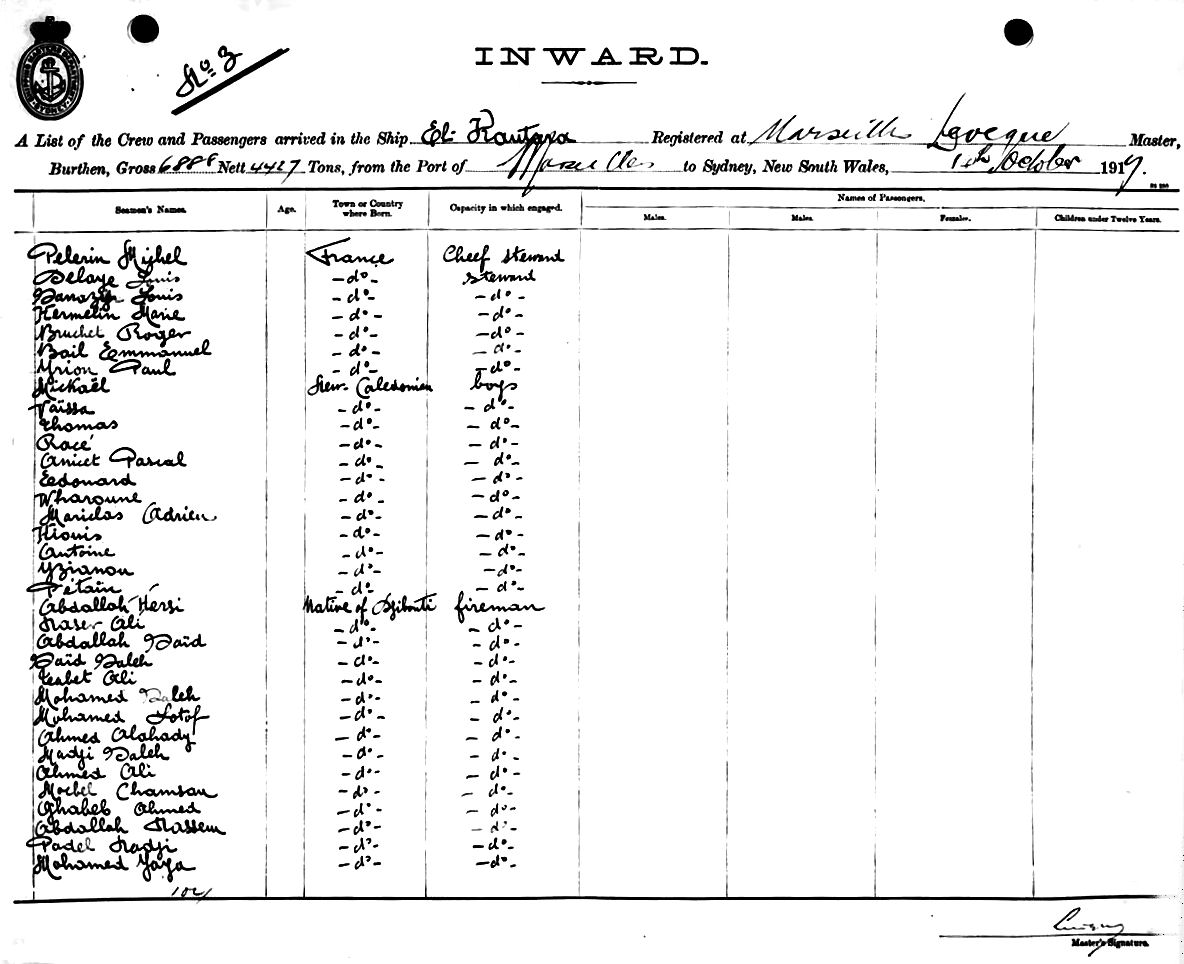 No 3
INWARD.
A List of the Crew and Passengers arrived in the Ship El-Kantara Registered at Marseille Leveque Master,
Burthen, Gross 6888 Nett 4427 Tons, from the Port of Marseilles to Sydney, New South Wales, 1st October 1917.
Seamen's Names. Age. Town or Country where Born. Capacity in which engaged. Names of Passengers.
Males. Males. Females. Children under Twelve Years.
Pelerin Mijhel France Cheef Steward
Delaye Louis -do- Steward
Louis -do- -do-
Hermelin Marie -do- -do-
Bruchet Roger -do- -do-
Bail Eemmanuel -do- -do-
Yrion Paul -do- -do-
Mickaël New-Caledonien boys
Vaïssa -do- -do-
Thomas -do- -do-
Racé -do- -do-
Anicet Pascal -do- -do-
Eedouard -do- -do-
Wharoune -do- -do-
Mariclas Adrien -do- -do-
Hiouis -do- -do-
Antoine -do- -do-
-do- -do-
Pétain -do- -do-
Abdallah Hersi Native of Djibouti fireman
Naser Ali -do- -do-
Abdallah Saïd -do- -do-
Saïd Saleh -do- -do-
Ali -do- -do-
Mohamed Saleh -do- -do-
Mohamed Lotof -do- -do-
Ahmed Alahady -do- -do-
Hadji Saleh -do- -do-
Ahmed Ali -do- -do-
Chamsan -do- -do-
Ghabeb Ahmed -do- -do-
Abdallah Nassem -do- -do-
Padel Hadji -do- -do-
Mohamed Yaya -do- -do-
Master's Signature.